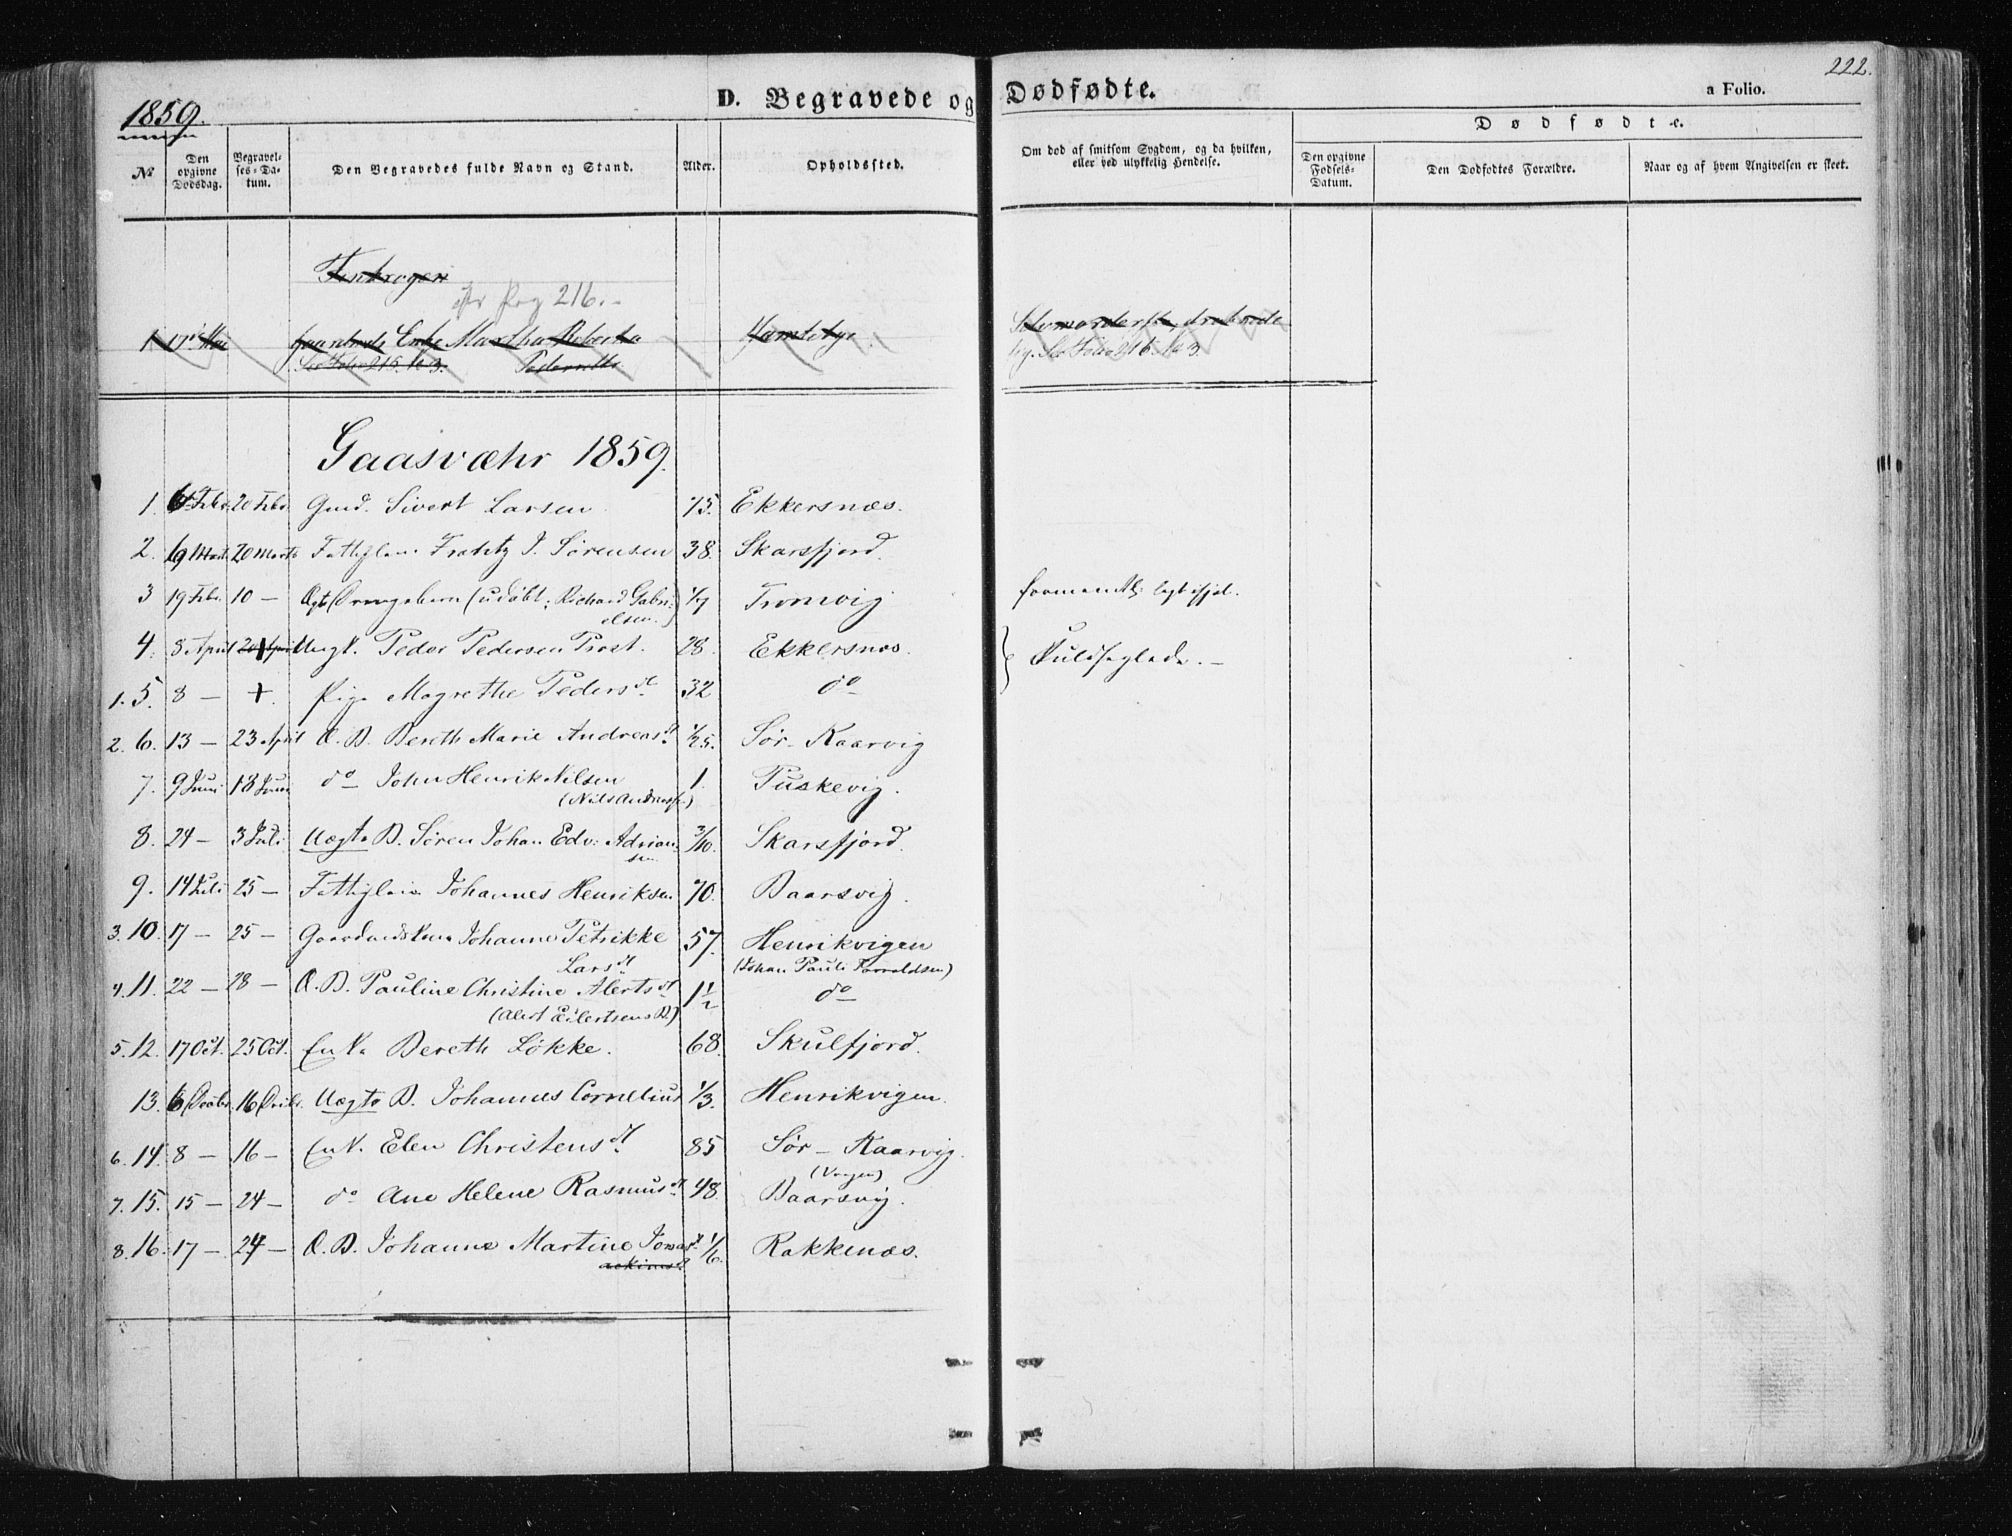 222.
1859.
D. Begravede og Dødfødte.
a Folio.
№
Den opgivne Dødsdag.
Begravelses-Datum.
Den Begravedes fulde Navn og Stand.
Alder.
Opholdssted.
Om død af smitsom Sygdom, og da hvilken, eller ved ulykkelig Hendelse.
Dødfødte.
Den opgivne Fødsels-Datum.
Den Dødfødtes Forældre.
Naar og af hvem Angivelsen er skeet.
Finkrogen
Pag 216.
1 17de Mai Enke Martha Rebekka
Se Folio 215. No 3. Pedersdtr
Se Folio 216. No 3.
Gaasvæhr 1859.
1. 6 Febr. 20 Febr. Gmd. Sivert Larsen 75. Ekkersnæs.
2. 19 Marts 20 Marts Fattiglem Frantz J. Sørensen 38. Skarsfjord.
3 19 Febr. 10 — Ægte Drengebarn (udøbt; Richard Gabrielsen.) 1/7 Tromvig
4. 8 April 20 April Ungk. Peder Pedersen Prost. 28. Ekkersnæs. } Kuldseglede. —
1. 5. 8 — +. Pige Magrethe Pedersdt 32 do
2. 6. 13 — 23 April Æ. B. Bereth Marie Andreasdt 1/25. Sør-Kaarvig
7. 9 Juni 13 Juni do John Henrik Nilsen 1. Tuskevig.
8. 24 — 3 Juli Uægte B. Søren Johan Edv: Adriansen 3/10. Skarsfjord.
9. 14 Juli 25 — Fattiglem Johannes Henriksen 70. Baarsvig.
3. 10. 17 — 25 — Gaardmandskone Johanna Petrikke Larsdt 57. Henrikvigen
4. 11. 22 — 28 — Æ. B. Pauline Christine Alertsdt 1 1/2 do
(Alert Eilertsens B.)
5. 12. 17 Oct. 25 Oct. Enke Bereth Løkke. 68. Skulfjord.
13. 6 Decbr. 16 Decbr. Uægte B. Johannes Cornelius 1/3. Henrikvigen.
6. 14. 8 — 16 — Enk. Elen Christensdt 85 Sør-Kaarvig.
7. 15. 15 — 24 — do Ane Helene Rasmusdt 48. Baarsvig.
8. 16. 17 — 24 — Æ. B. Johanna Martine Jonasdt 1/6. Rakkenæs.